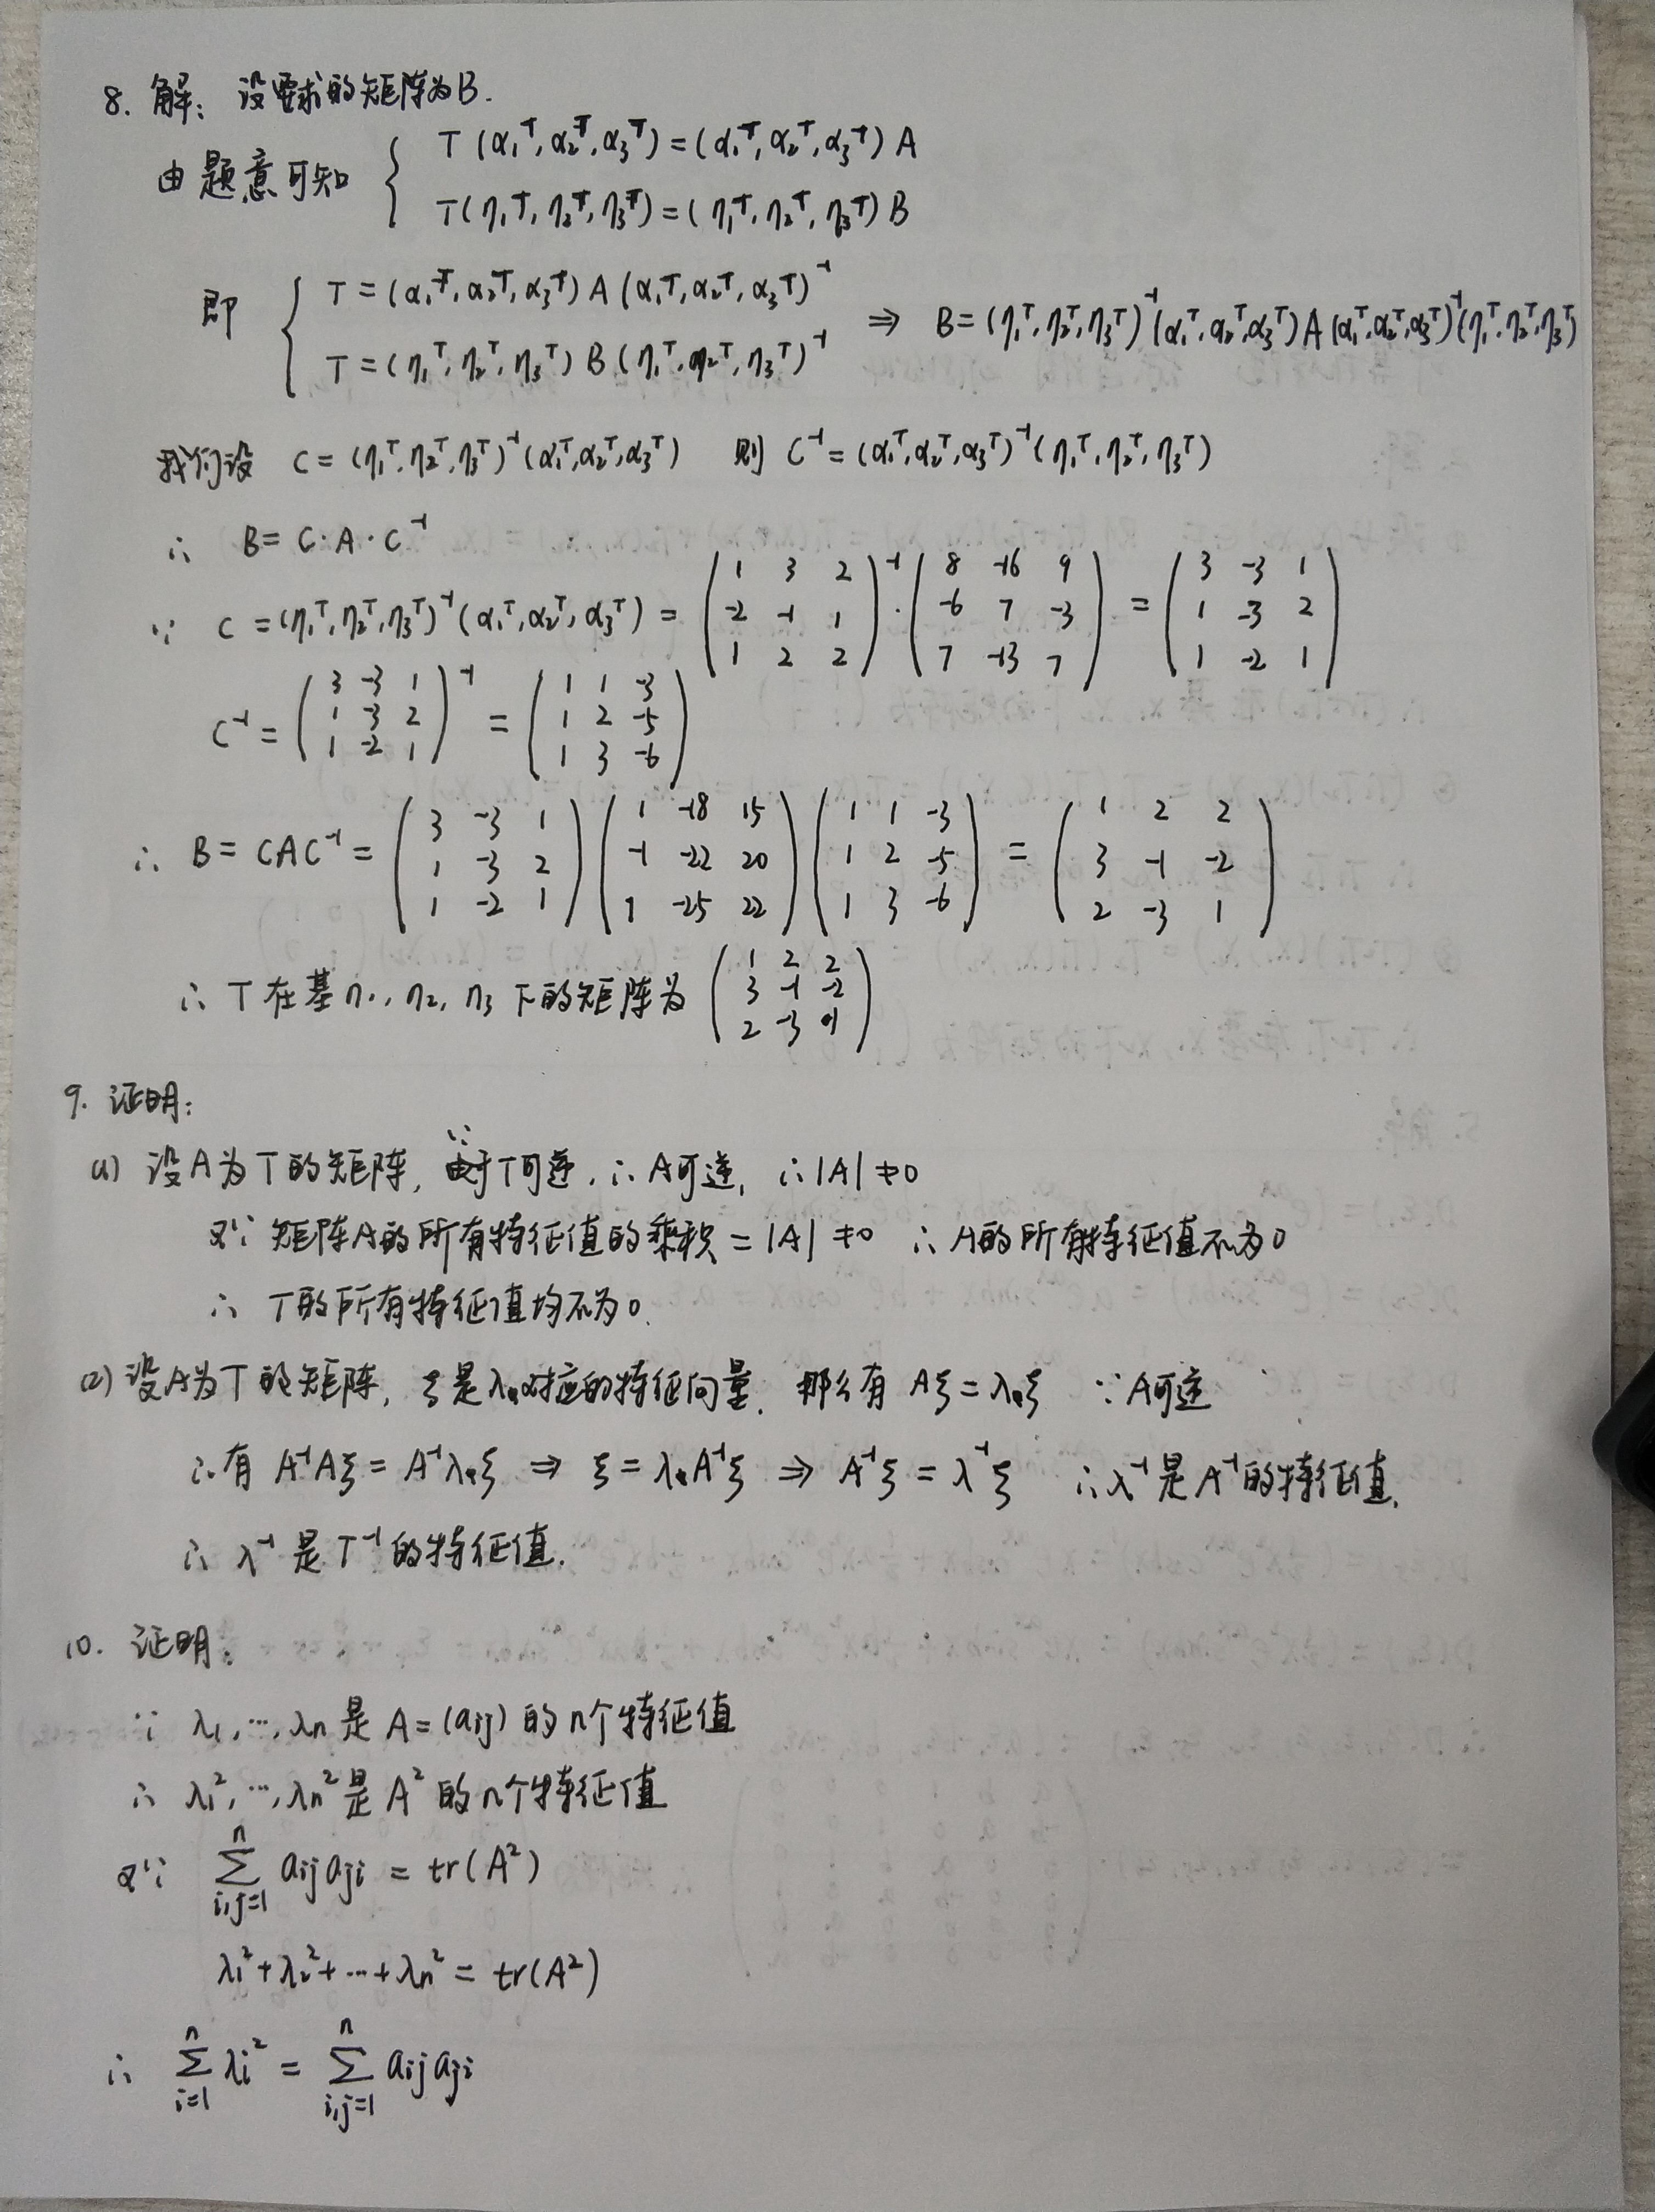 8. 解: 设要求的矩阵为B.
由题意可知 { T(α₁ᵀ, α₂ᵀ, α₃ᵀ) = (α₁ᵀ, α₂ᵀ, α₃ᵀ) A
T(η₁ᵀ, η₂ᵀ, η₃ᵀ) = (η₁ᵀ, η₂ᵀ, η₃ᵀ) B
即 { T = (α₁ᵀ, α₂ᵀ, α₃ᵀ) A (α₁ᵀ, α₂ᵀ, α₃ᵀ)⁻¹
T = (η₁ᵀ, η₂ᵀ, η₃ᵀ) B (η₁ᵀ, η₂ᵀ, η₃ᵀ)⁻¹ ⇒ B = (η₁ᵀ, η₂ᵀ, η₃ᵀ)⁻¹ (α₁ᵀ, α₂ᵀ, α₃ᵀ) A (α₁ᵀ, α₂ᵀ, α₃ᵀ)⁻¹ (η₁ᵀ, η₂ᵀ, η₃ᵀ)
我们设 C = (η₁ᵀ, η₂ᵀ, η₃ᵀ)⁻¹ (α₁ᵀ, α₂ᵀ, α₃ᵀ) 则 C⁻¹ = (α₁ᵀ, α₂ᵀ, α₃ᵀ)⁻¹ (η₁ᵀ, η₂ᵀ, η₃ᵀ)
∴ B = C·A·C⁻¹
∵ C = (η₁ᵀ, η₂ᵀ, η₃ᵀ)⁻¹ (α₁ᵀ, α₂ᵀ, α₃ᵀ) = (1 3 2; -2 -1 1; 1 2 2)⁻¹ · (8 -16 9; -6 7 -3; 7 -13 7) = (3 -3 1; 1 -3 2; 1 -2 1)
C⁻¹ = (3 -3 1; 1 -3 2; 1 -2 1)⁻¹ = (1 1 -3; 1 2 -5; 1 3 -6)
∴ B = CAC⁻¹ = (3 -3 1; 1 -3 2; 1 -2 1) (1 -18 15; -1 -22 20; 1 -25 22) (1 1 -3; 1 2 -5; 1 3 -6) = (1 2 2; 3 -1 -2; 2 -3 1)
∴ T在基η₁, η₂, η₃下的矩阵为 (1 2 2; 3 -1 -2; 2 -3 1)
9. 证明:
(1) 设A为T的矩阵, ∵T可逆. ∴A可逆, ∴|A|≠0
又∵ 矩阵A的所有特征值的乘积 = |A| ≠0 ∴A的所有特征值不为0
∴ T的所有特征值均不为0.
(2) 设A为T的矩阵, ξ是λ对应的特征向量. 那么有 Aξ=λξ ∵A可逆
∴有 A⁻¹Aξ = A⁻¹λξ ⇒ ξ = λA⁻¹ξ ⇒ A⁻¹ξ = λ⁻¹ξ ∴λ⁻¹是A⁻¹的特征值.
∴ λ⁻¹是T⁻¹的特征值.
10. 证明:
∵ λ₁, ⋯, λn 是 A=(aij) 的n个特征值
∴ λ₁², ⋯, λn² 是 A² 的n个特征值
又∵ ∑_{i,j=1}^{n} aij aji = tr(A²)
λ₁²+λ₂²+⋯+λn² = tr(A²)
∴ ∑_{i=1}^{n} λi² = ∑_{i,j=1}^{n} aij aji